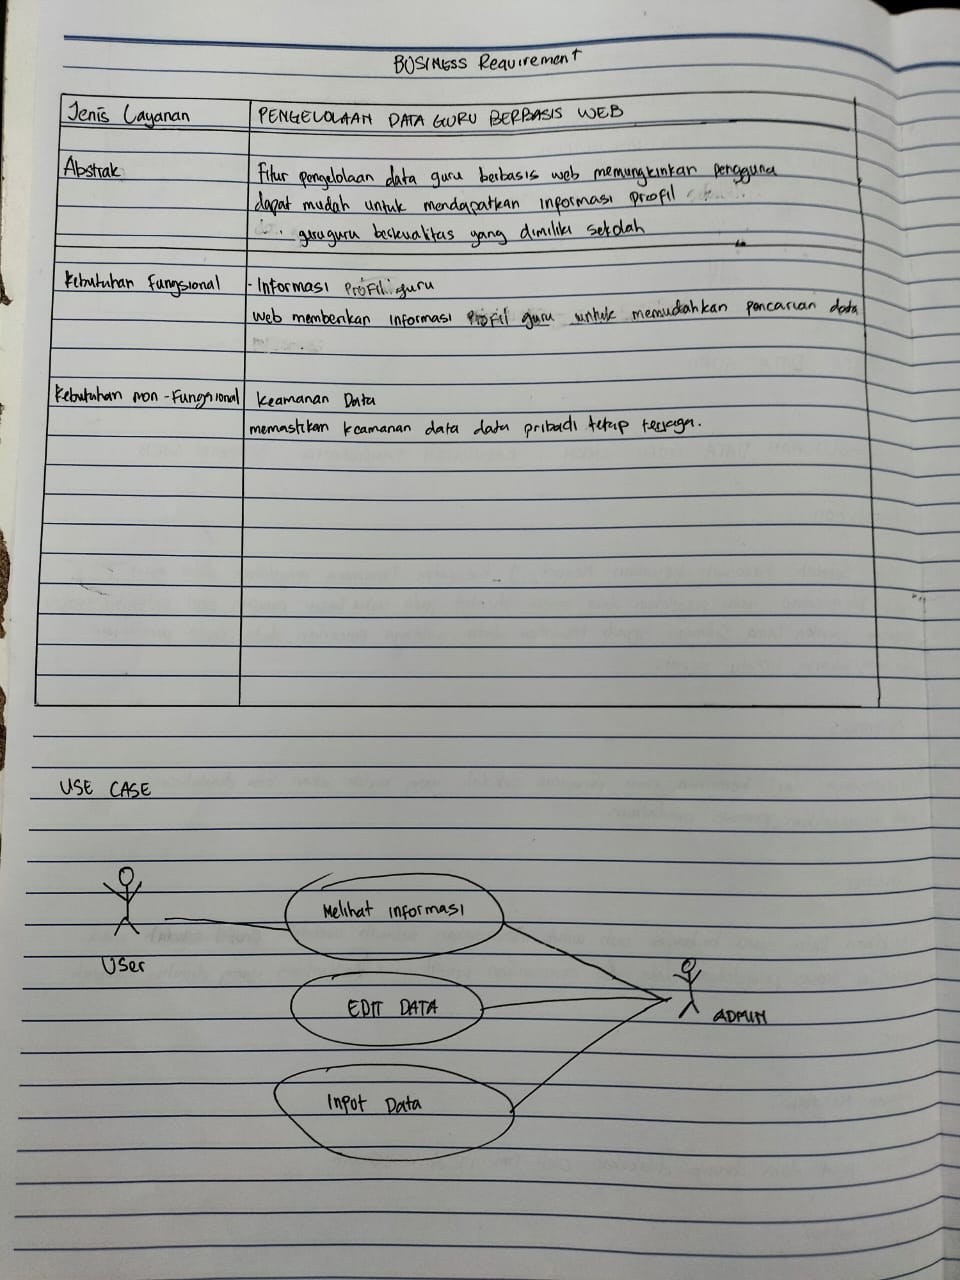 BUSINESS Requirement
Jenis Layanan
PENGELOLAAN DATA GURU BERBASIS WEB
Abstrak
Fitur pengelolaan data guru berbasis web memungkinkan pengguna
dapat mudah untuk mendapatkan informasi proofil
guru guru berkualitas yang dimiliki sekolah
Kebutuhan Fungsional
- Informasi Profil guru
Web memberikan informasi Profil guru untuk memudahkan pencarian data
Kebutuhan non-Fungsional
Keamanan Data
memastikan keamanan data data pribadi tetap terjaga.
USE CASE
Melihat informasi
User
EDIT DATA
ADMIN
Input Data